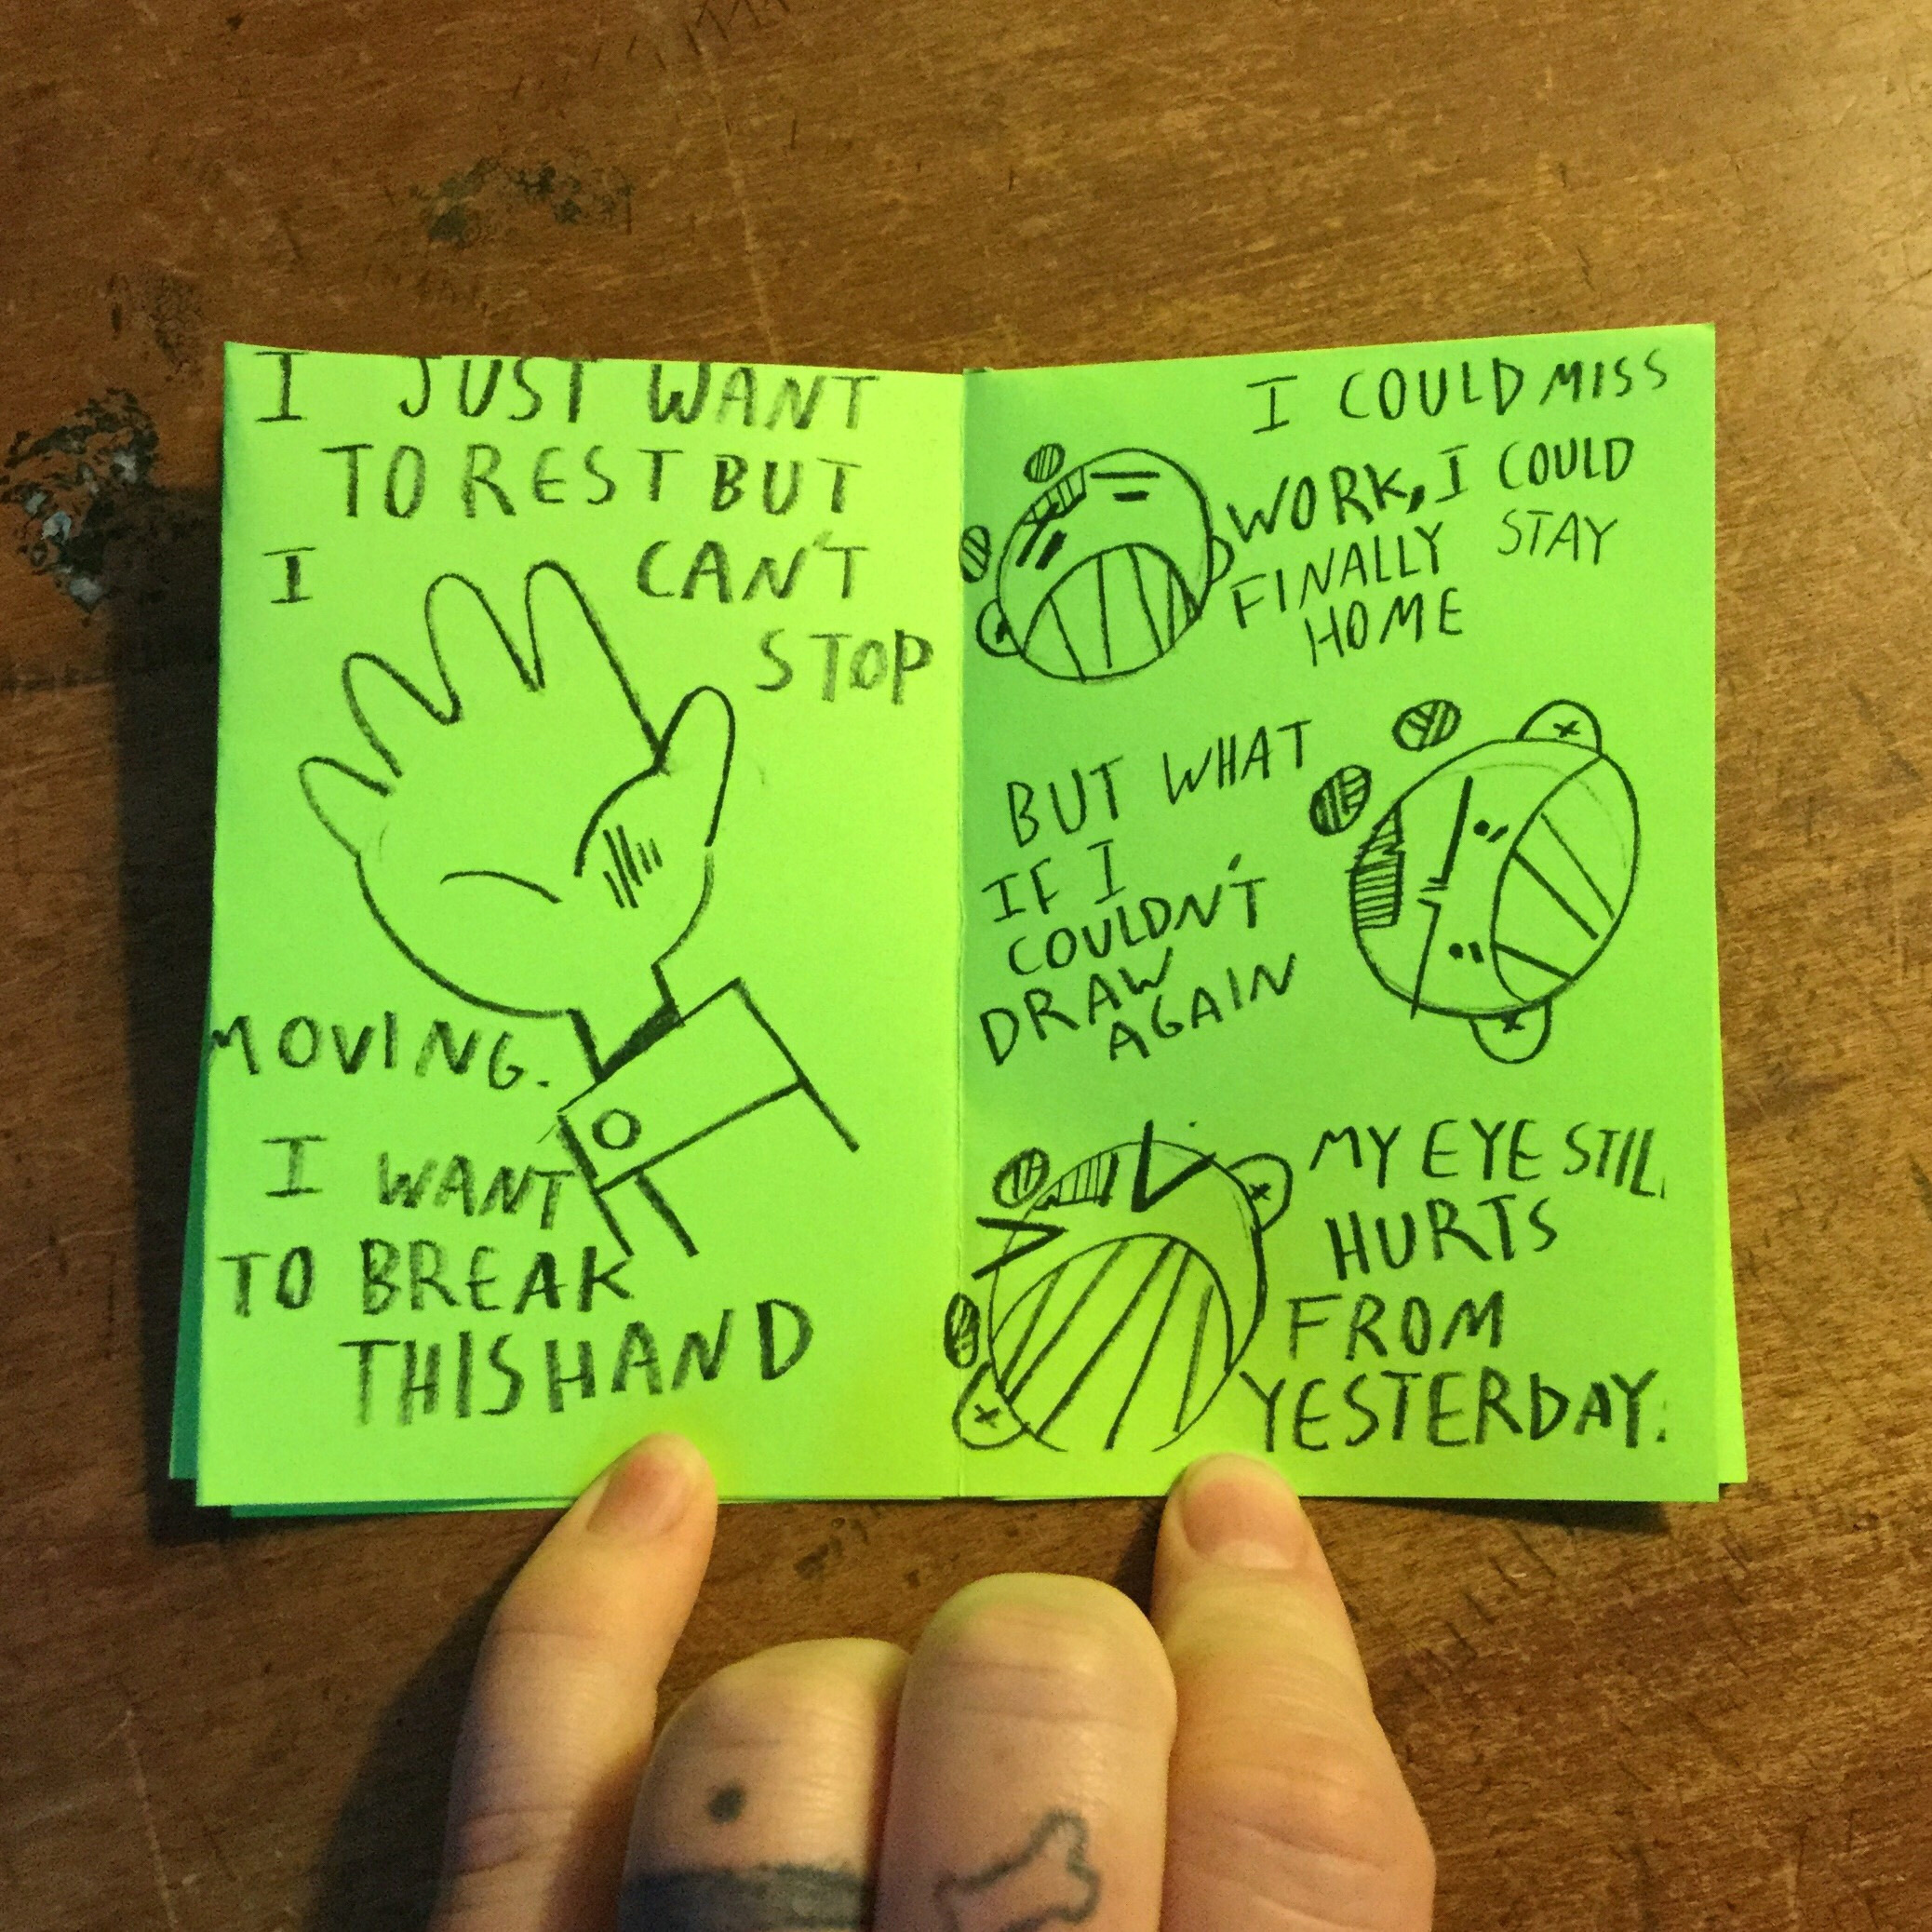 I JUST WANT
TO REST BUT
I CAN'T
STOP
MOVING.
I WANT
TO BREAK
THIS HAND
I COULD MISS
WORK, I COULD
FINALLY STAY
HOME
BUT WHAT
IF I
COULDN'T
DRAW
AGAIN
MY EYE STILL
HURTS
FROM
YESTERDAY.